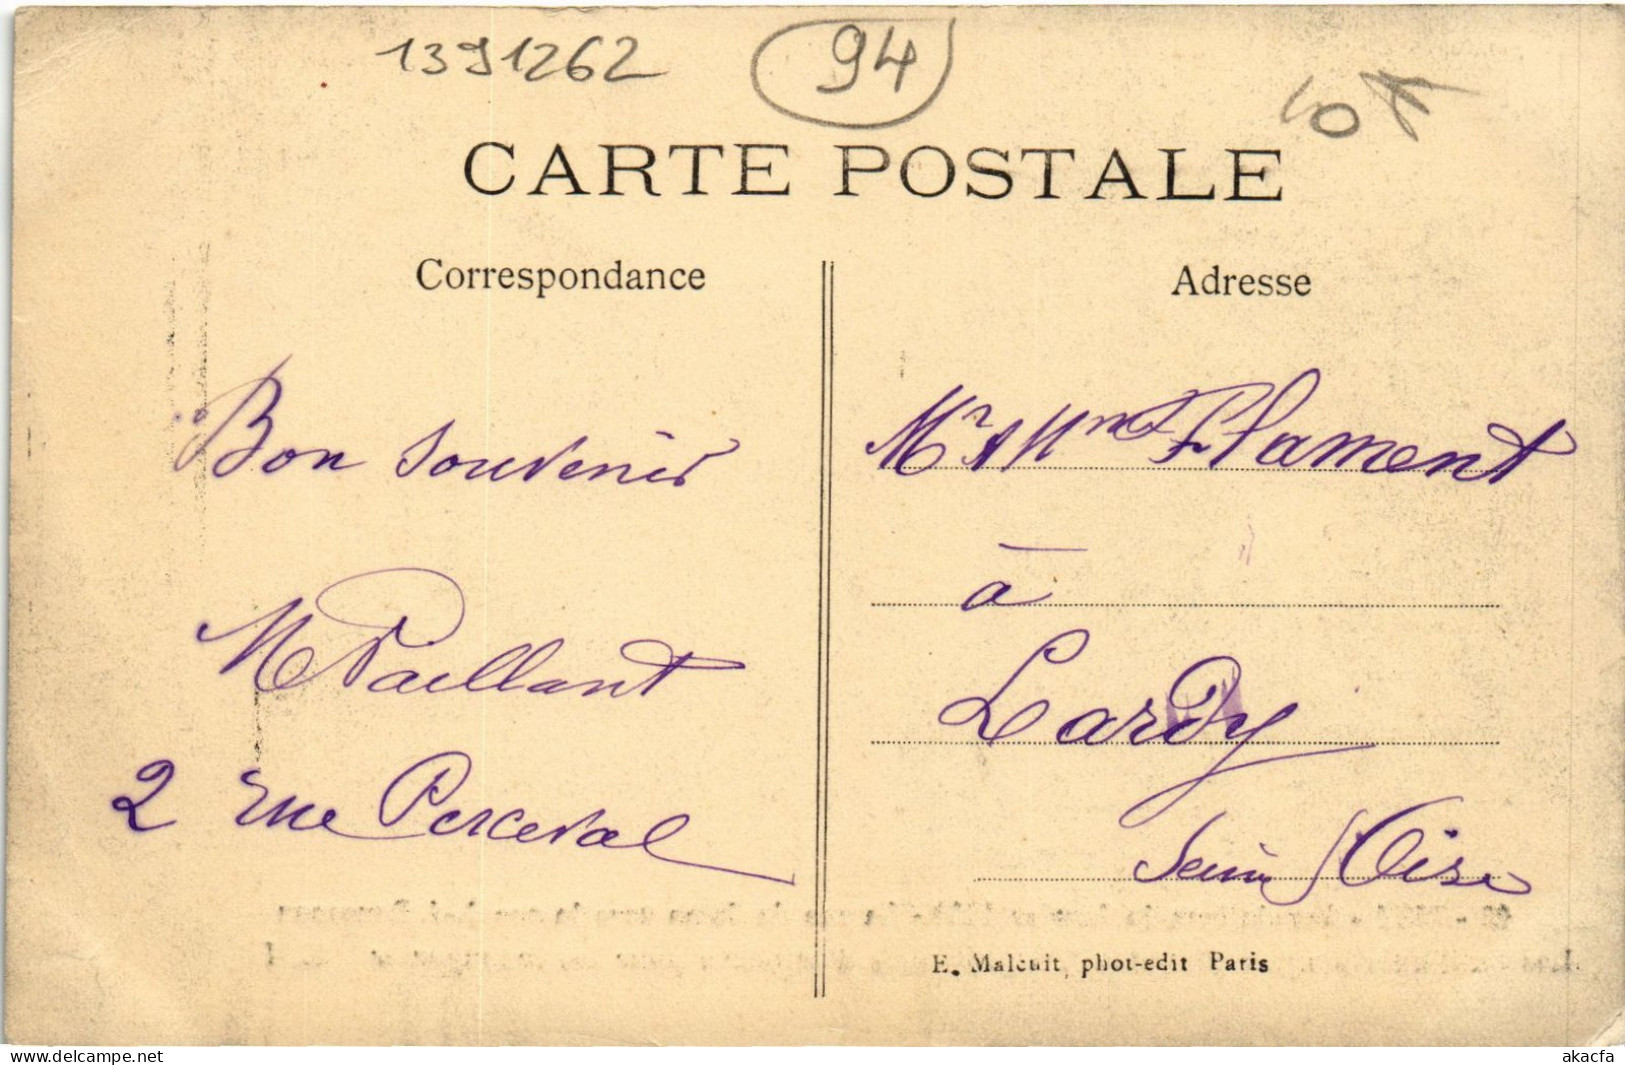 1391262
94
CARTE POSTALE
Correspondance
Adresse
Bon souvenir
M Vaillant
2 rue Perceval
Mr & Mme Flament
à
Lardy
Seine & Oise
E. Malcuit, phot-edit Paris
www.delcampe.net
akacfa